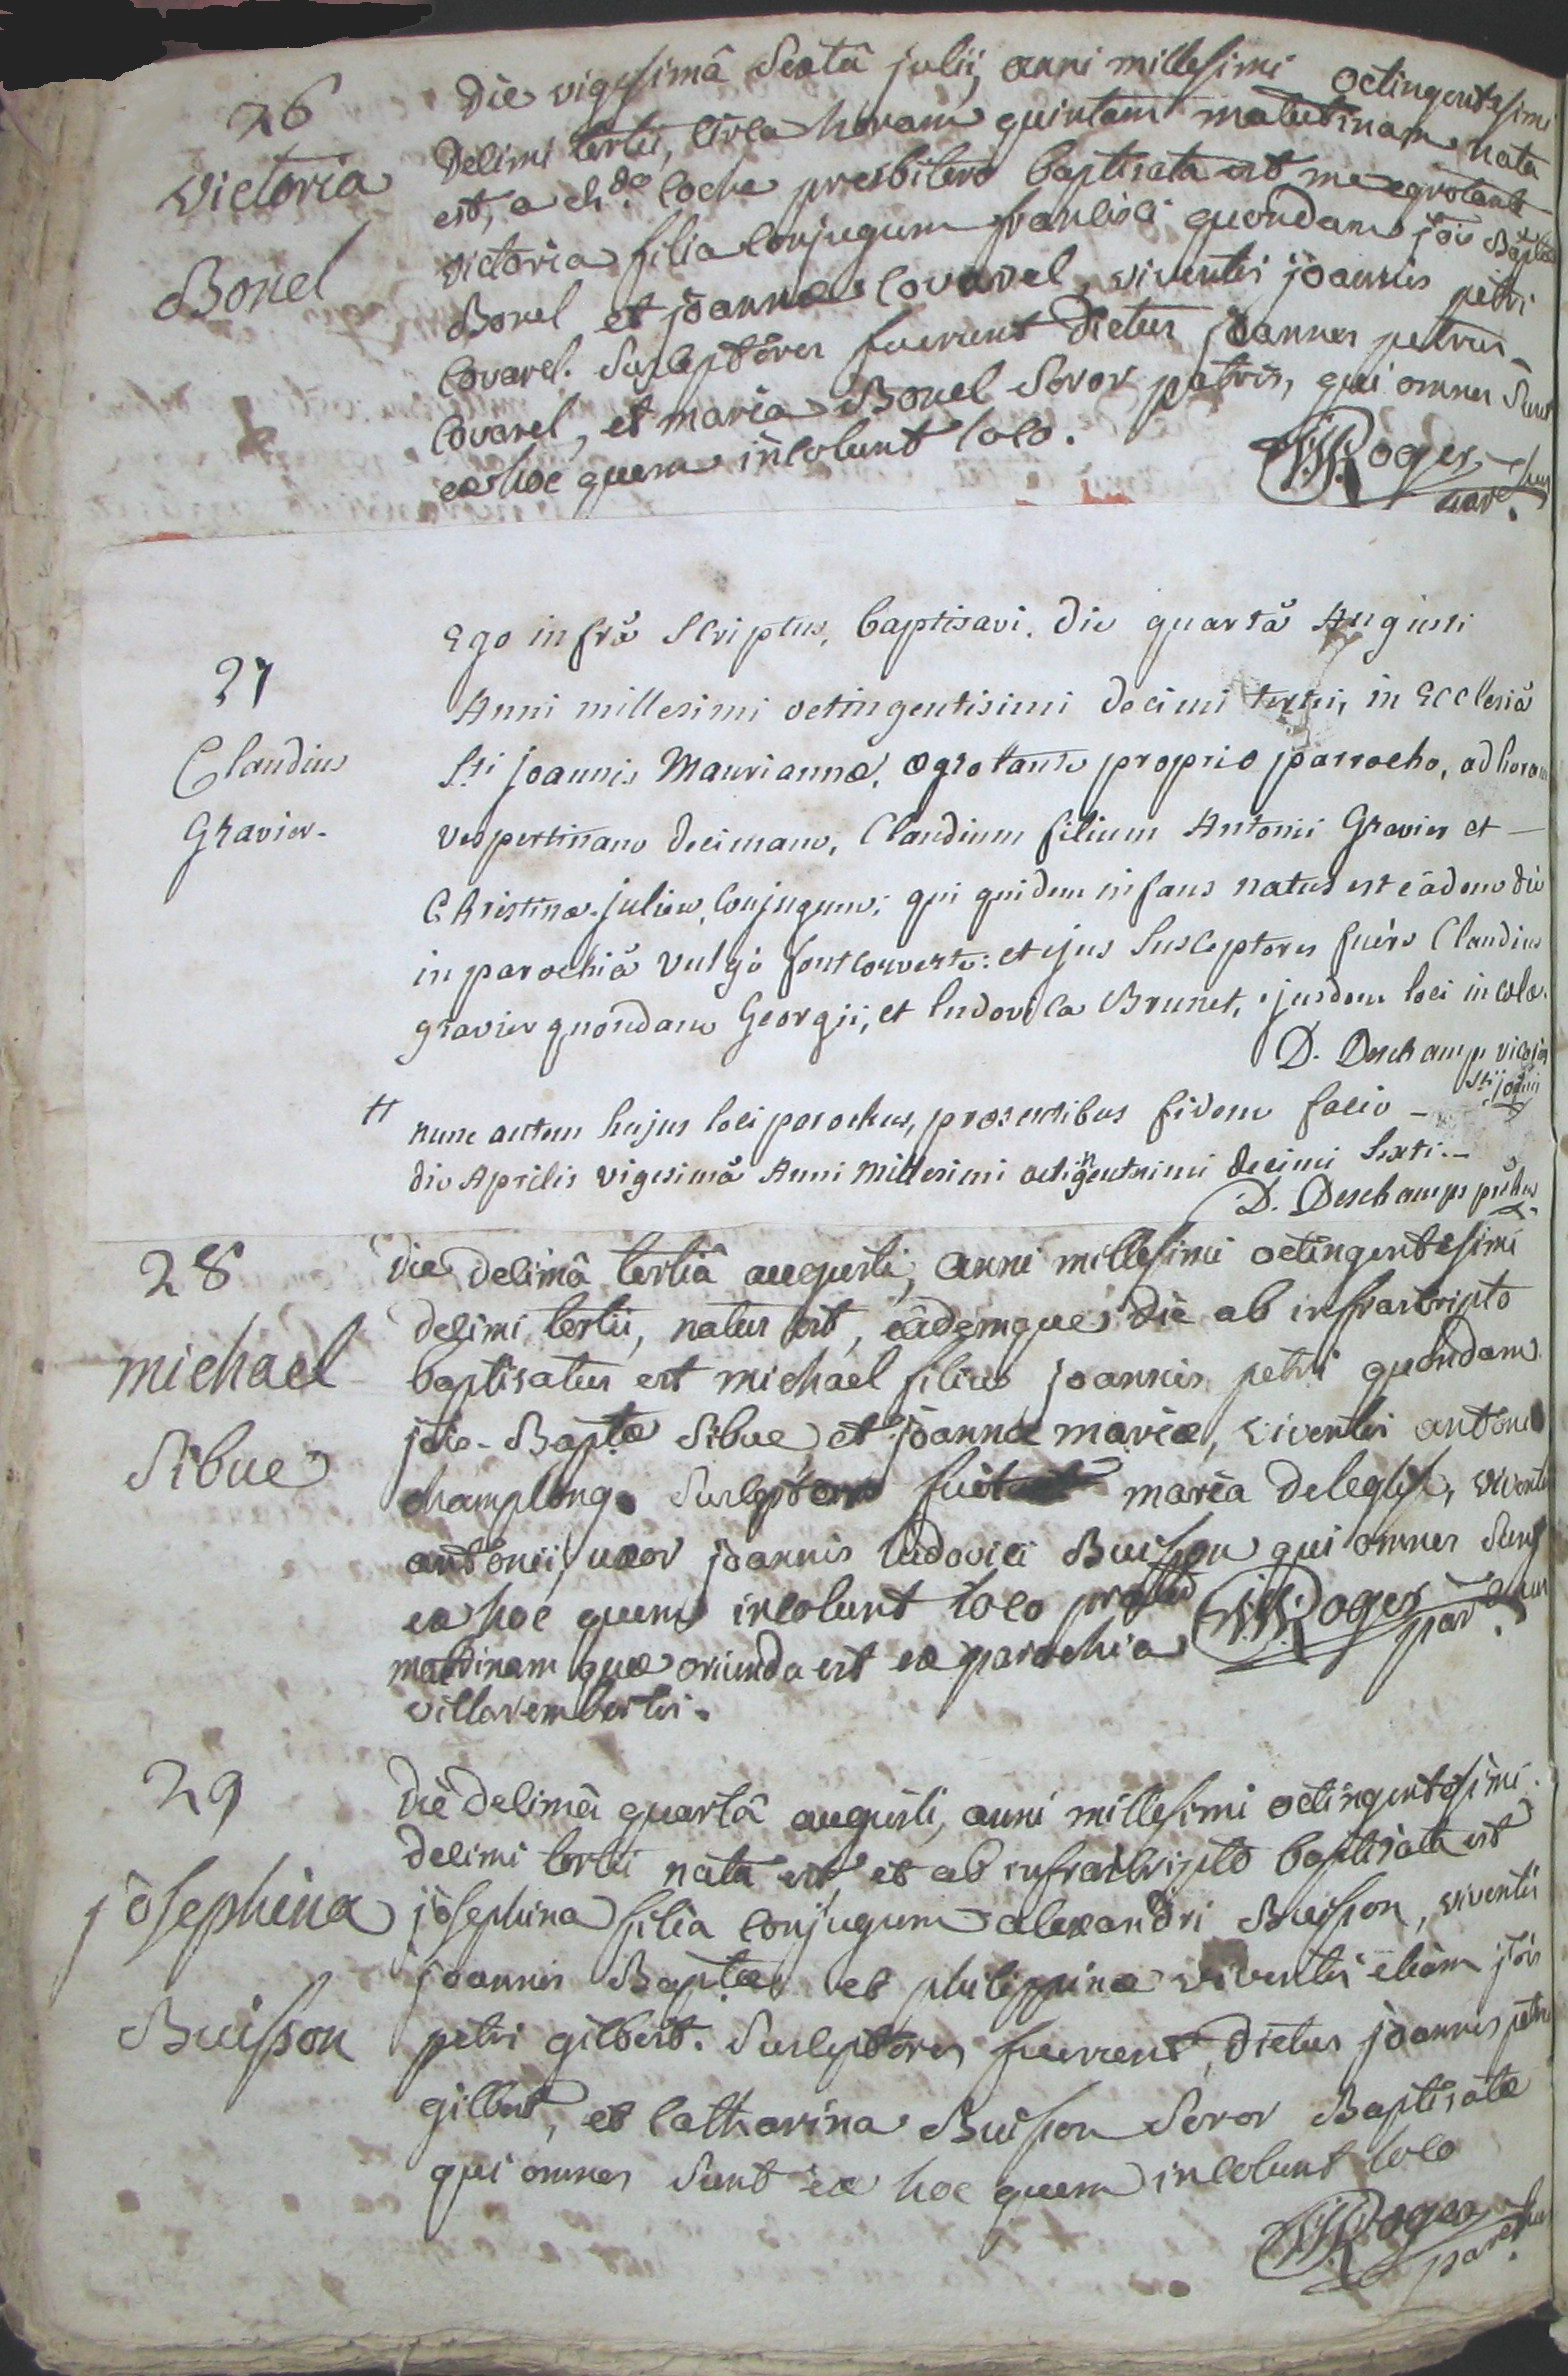 26
Victoria
Bonel
Die vigesimâ sextâ julii, anni millesimi octingentesimi
decimi tertii, circa horam quintam matutinam nata
est, a ch.do coche presbitero baptisata est me ægrotante
victoria filia conjugum francisci quondam jois Baptæ
Bonel et joannæ covarel, viventis joannis petri
covarel. Susceptores fuerunt dictus joannes petrus
covarel, et maria Bonel soror patris, qui omnes sunt
ex hoc quem incolunt loco.
Roger
parchus
27
Claudius
Gravier.
Ego infrà scriptus, baptisavi, die quartâ Augusti
Anni millesimi octingentisimi decimi tertii, in Ecclesiâ
Sti joannis Mauriannæ, ægrotante proprio parrocho, ad horam
vespertinam decimam, Claudium filium Antonii Gravier et —
Christinæ julien, conjugum; qui quidem infans natus est eâdem die
in parochiâ vulgò fontcouverte: et ejus susceptores fuère Claudius
gravier quondam Georgii, et ludovica Brunet, ejusdem loci incolæ.
D. Deschamps vicarius
Sti joannis
# nunc autem hujus loci parochus, præsentibus fidem facio —
die Aprilis vigesimâ Anni Millesimi octingentesimi decimi sexti. —
D. Deschamps pchus
28
michael
Sibue
Die decimâ tertiâ augusti, anni millesimi octingentesimi
decimi tertii, natus est, eâdemque die ab infrascripto
baptisatus est michael filius joannis petri quondam
jois-Baptæ Sibue et joannæ mariæ, viventis antonii
champlong. Susceptor fuit maria deleglise, viventis
antonii, uxor joannis ludovici Buisson qui omnes sunt
ex hoc quem incolunt loco præter
matrinam quæ oriunda est ex parochia
villaremberti.
Roger
parchus
29
josephina
Buisson
Die decimâ quartâ augusti, anni millesimi octingentesimi
decimi tertii nata est, et ab infrascripto baptisata est
josephina filia conjugum alexandri Buisson, viventis
joannis Baptæ et philippinæ viventis etiam jois
petri gilbert. Susceptores fuerunt, dictus joannes petrus
gilbert, et catharina Buisson soror Baptisatæ
qui omnes sunt ex hoc quem incolunt loco
Roger
parchus